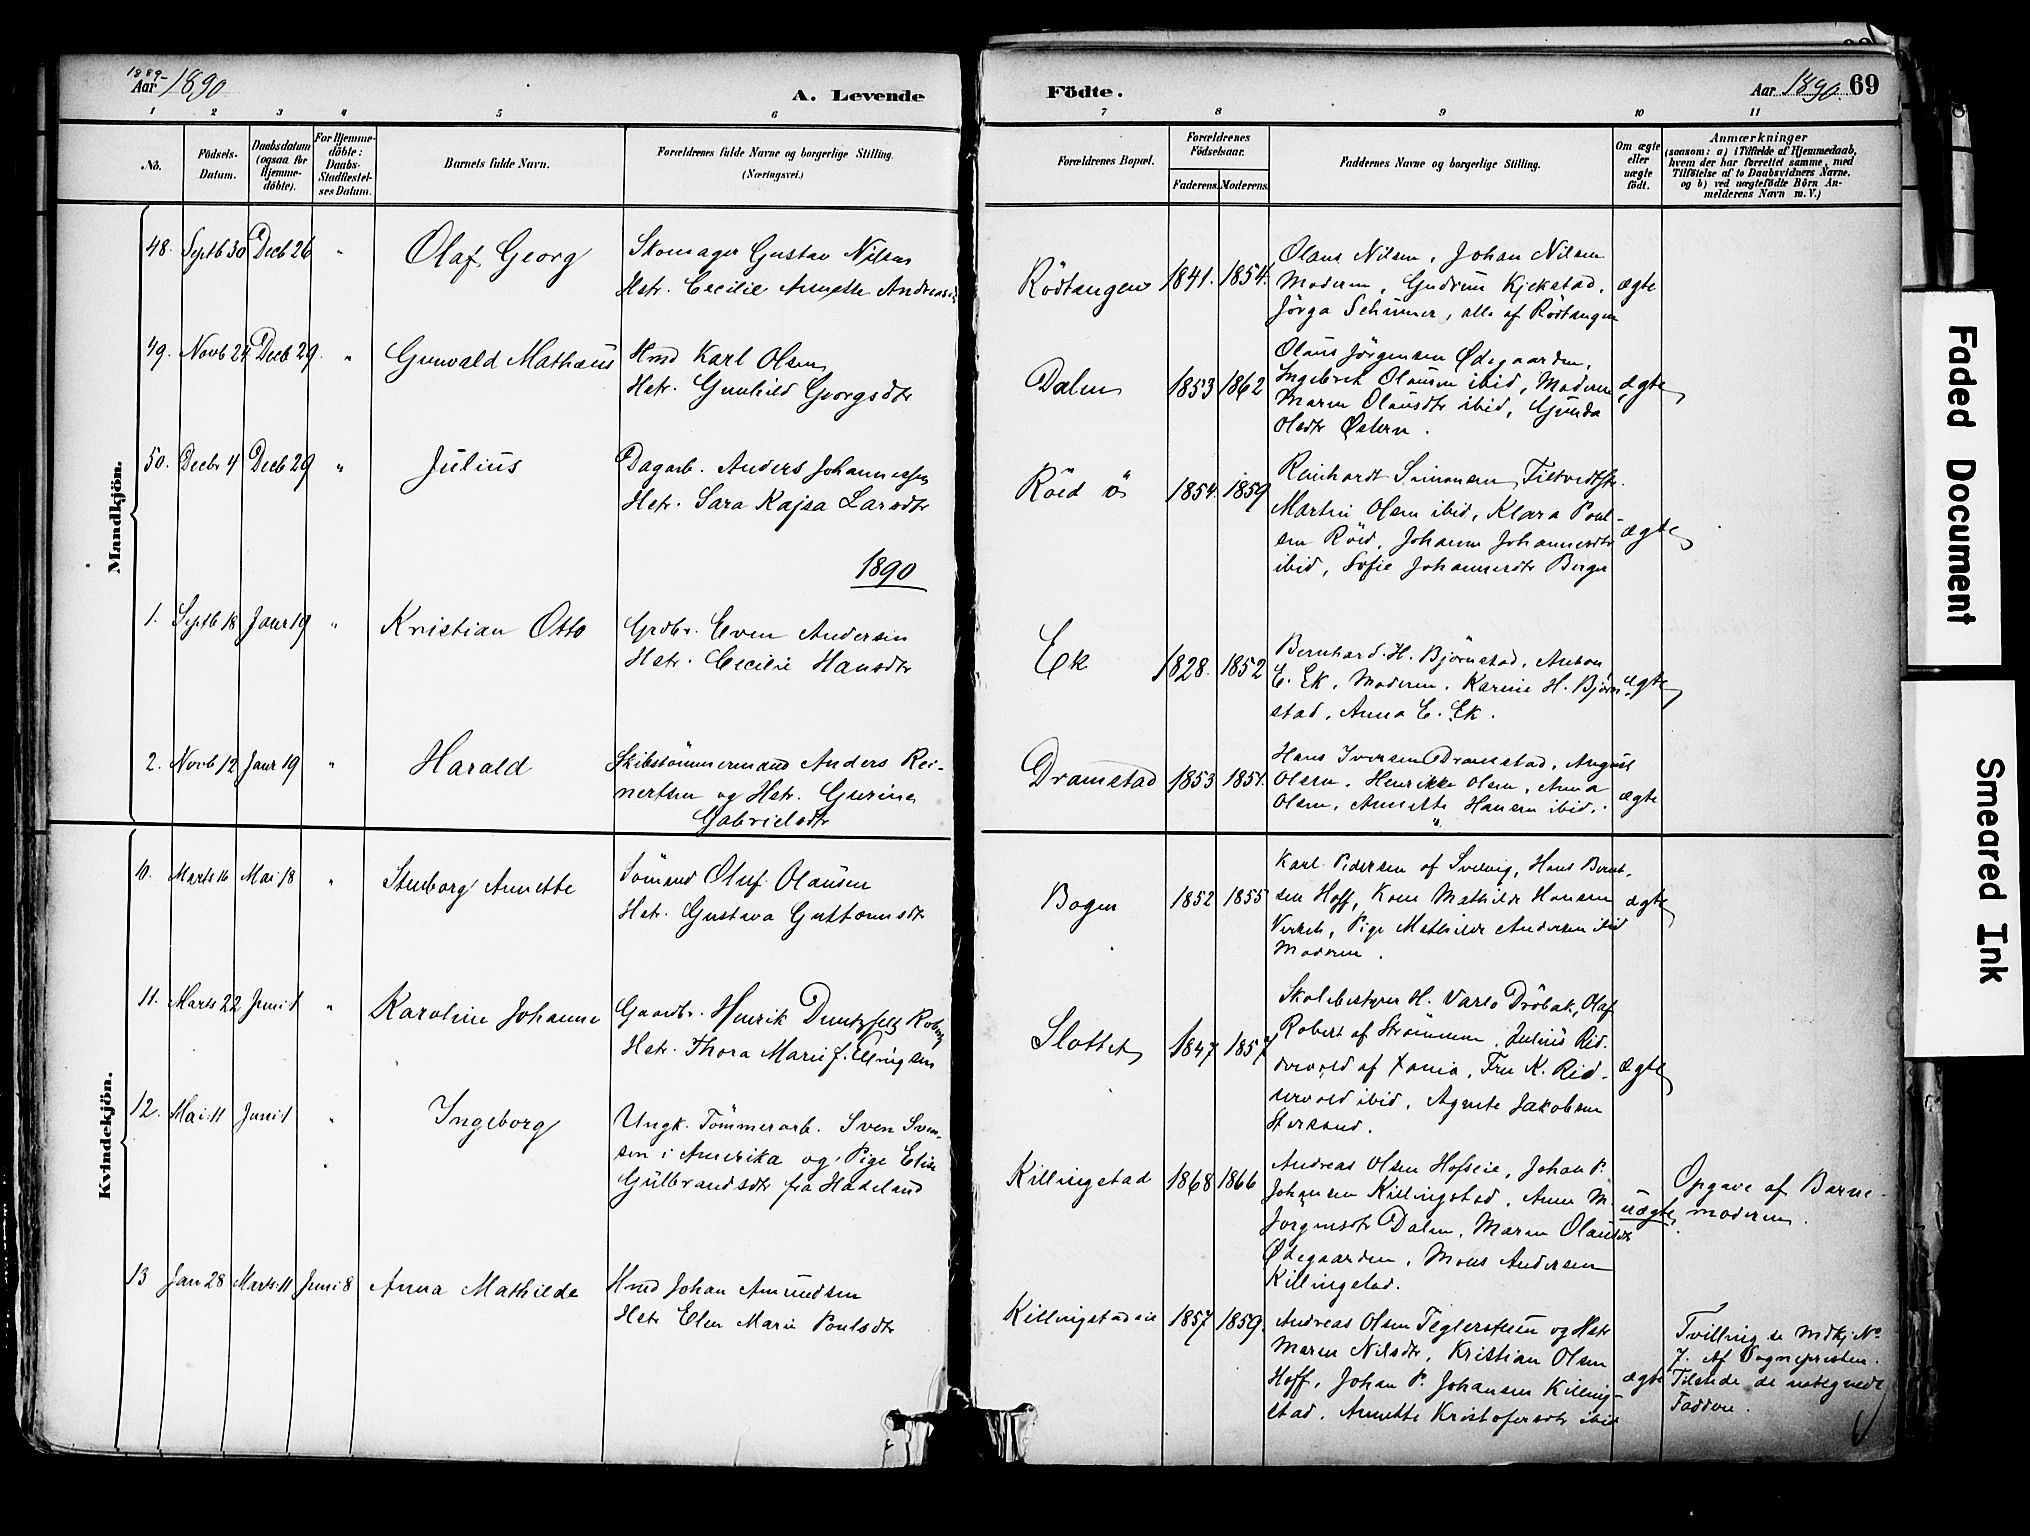 1889-
Aar 1890
A. Levende
Födte.
Aar 1890. 69
1 2 3 4 5 6 7 8 9 10 11
No.
Födsels-
Datum.
Daabsdatum
(ogsaa for
Hjemme-
döbte).
For Hjemme-
döbte:
Daabs-
Stadfæstel-
ses Datum.
Barnets fulde Navn.
Forældrenes fulde Navne og borgerlige Stilling.
(Næringsvei.)
Forældrenes Bopæl.
Forældrenes
Födselsaar.
Faderens. Moderens.
Faddernes Navne og borgerlige Stilling.
Om ægte
eller
uægte
födt.
Anmærkninger
(saasom: a) i Tilfælde af Hjemmedaab,
hvem der har forrettet samme, med
Tilföielse af to Daabsvidners Navne,
og b) ved uægtefödte Börn An-
melderens Navn m. V.)
Mandkjön.
48. Septb 30 Decb 26 " Olaf Georg
Skomager Gustav Nilsen
Hstr. Cecilie Annette Andreasdtr
Rödtangen 1841. 1854.
Olaus Nilsen, Johan Nilsen
Moderen, Gudrun Kjekstad,
Jörga Schümer, alle af Rödtangen
ægte
49. Novb 24 Decb 29. " Gunvald Mathæus
Hmd Karl Olsen
Hstr. Gunhild Georgsdtr
Dalen 1853 1862
Olaus Jörgensen Ødegaarden,
Ingebret Olausen ibid, Moderen
Maren Olausdtr ibid, Gunda
Olsdtr Østern.
ægte
50. Decbr 4 Decb 29 " Julius
Dagarb. Anders Johannessen
Hstr. Sara Kajsa Larsdtr
Röed ö 1854. 1859
Reinhardt Simonsen Filtvedt
Martin Olsen ibid, Klara Poul-
sen Röed, Johanne Johannesdtr
ibid, Sofie Johannesdtr Berger
ægte
1890
1. Septb 18 Janr 19 " Kristian Otto
Grdbr. Even Andersen
Hstr. Cecilie Hansdtr
Ek 1828. 1852
Bernhard H. Björnstad, Anton
E. Ek, Moderen, Karine H. Björn-
stad, Anna E. Ek.
ægte
2. Novb 12 Janr 19 " Harald
Skibstömmermand Anders Rei-
nertsen og Hstr. Gurine
Gabrielsdtr
Dramstad 1853 1851.
Hans Iversen Dramstad, August
Olsen, Henrikke Olsen, Anna
Olsen, Annette Hansen ibid.
ægte
Kvindekjön.
10. Marts 16 Mai 18 " Stenborg Annette
Sömand Oluf Olausen
Hstr. Gustava Guttormsdtr
Bogen 1852 1855
Karl Pedersen af Svelvig, Hans Bernt-
sen Hoff, Kone Mathilde Hansen
Verket, Pige Mathilde Andersen ibid
Moderen.
ægte
11. Marts 22 Juni 1 " Karoline Johanne
Gaardbr. Henrik Duntzfelt Robert
Hstr. Thora Marie J. Ellingsen
Slottet 1847 1857
Skolebestyrer H. Varlo Dröbak, Olaf
Robert af Strömmen, Julius Rid-
dervold af Xania, Fru K. Rid-
dervold ibid, Agnete Jakobsen
Stersand.
ægte
12. Mai 11 Juni 1 " Ingeborg
Ungk. Tömmerarb. Sven Sven-
sen i Amerika og Pige Elise
Gulbrandsdtr fra Hadeland
Killingstad 1868 1866
Andreas Olsen Hofseie, Johan P.
Johansen Killingstad, Anne M.
Jörgensdtr Dalen, Maren Olausdtr
Ødegaarden, Mons Andersen
Killingstad.
uægte
Opgave af Barne-
moderen.
13 Jan 28 Marts 11 Juni 8 Anna Mathilde
Hmd Johan Amundsen
Hstr Elen Marie Poulsdtr
Killingstadeie 1857 1859.
Andreas Olsen Teglersteen og Hstr
Maren Nilsdtr, Kristian Olsen
Hoff, Johan P. Johansen Killing-
stad, Annette Kristofersdtr ibid
ægte
Tvilling se Mdkj No
7. Af Sognepresten.
Tilstede de nævnte
Faddere.
Faded Document
Smeared Ink